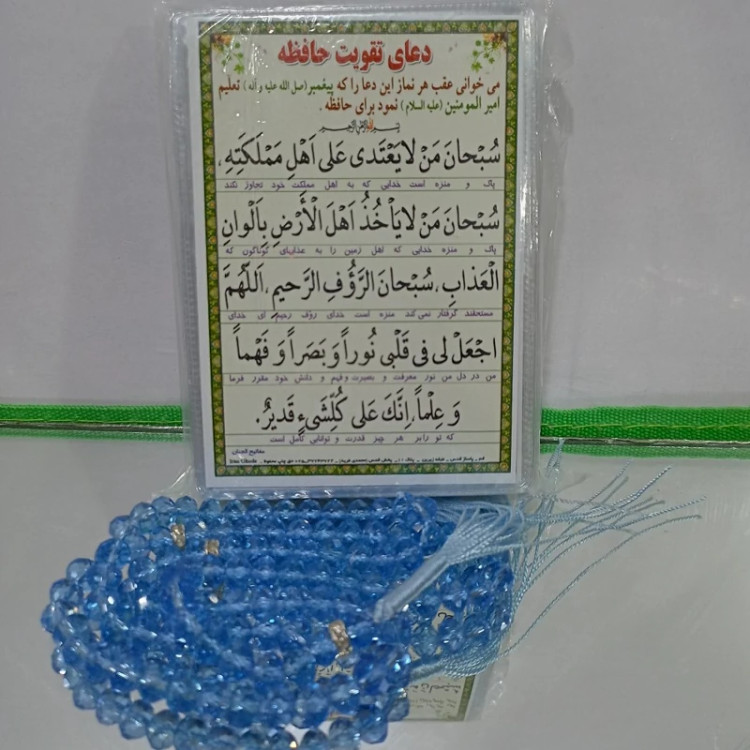 دعای تقویت حافظه
می خوانی عقب هر نماز این دعا را که پیغمبر (صل الله علیه و آله) تعلیم
امیر المومنین (علیه السلام) نمود برای حافظه.
سُبْحانَ مَنْ لایَعْتَدی عَلی اَهْلِ مَمْلَکَتِهِ،
پاک و منزه است خدایی که به اهل مملکت خود تجاوز نکند
سُبْحانَ مَنْ لایَأْخُذُ اَهْلَ الْأَرْضِ بِاَلْوانِ
پاک و منزه خدایی که اهل زمین را به عذابهای گوناگون که
الْعَذابِ، سُبْحانَ الرَّؤُفِ الرَّحیمِ، اَللّهُمَّ
مستحقند گرفتار نمی کند منزه است خدای رؤف رحیم ای خدای
اجْعَلْ لی فی قَلْبی نُوراً وَ بَصَراً وَ فَهْماً
من در دل من نور معرفت و بصیرت و فهم و دانش خود مقرر فرما
وَ عِلْماً، اِنَّکَ عَلی کُلِّشَیءٍ قَدیرٌ.
که تو را بر هر چیز قدرت و توانایی کامل است
مفاتیح الجنان